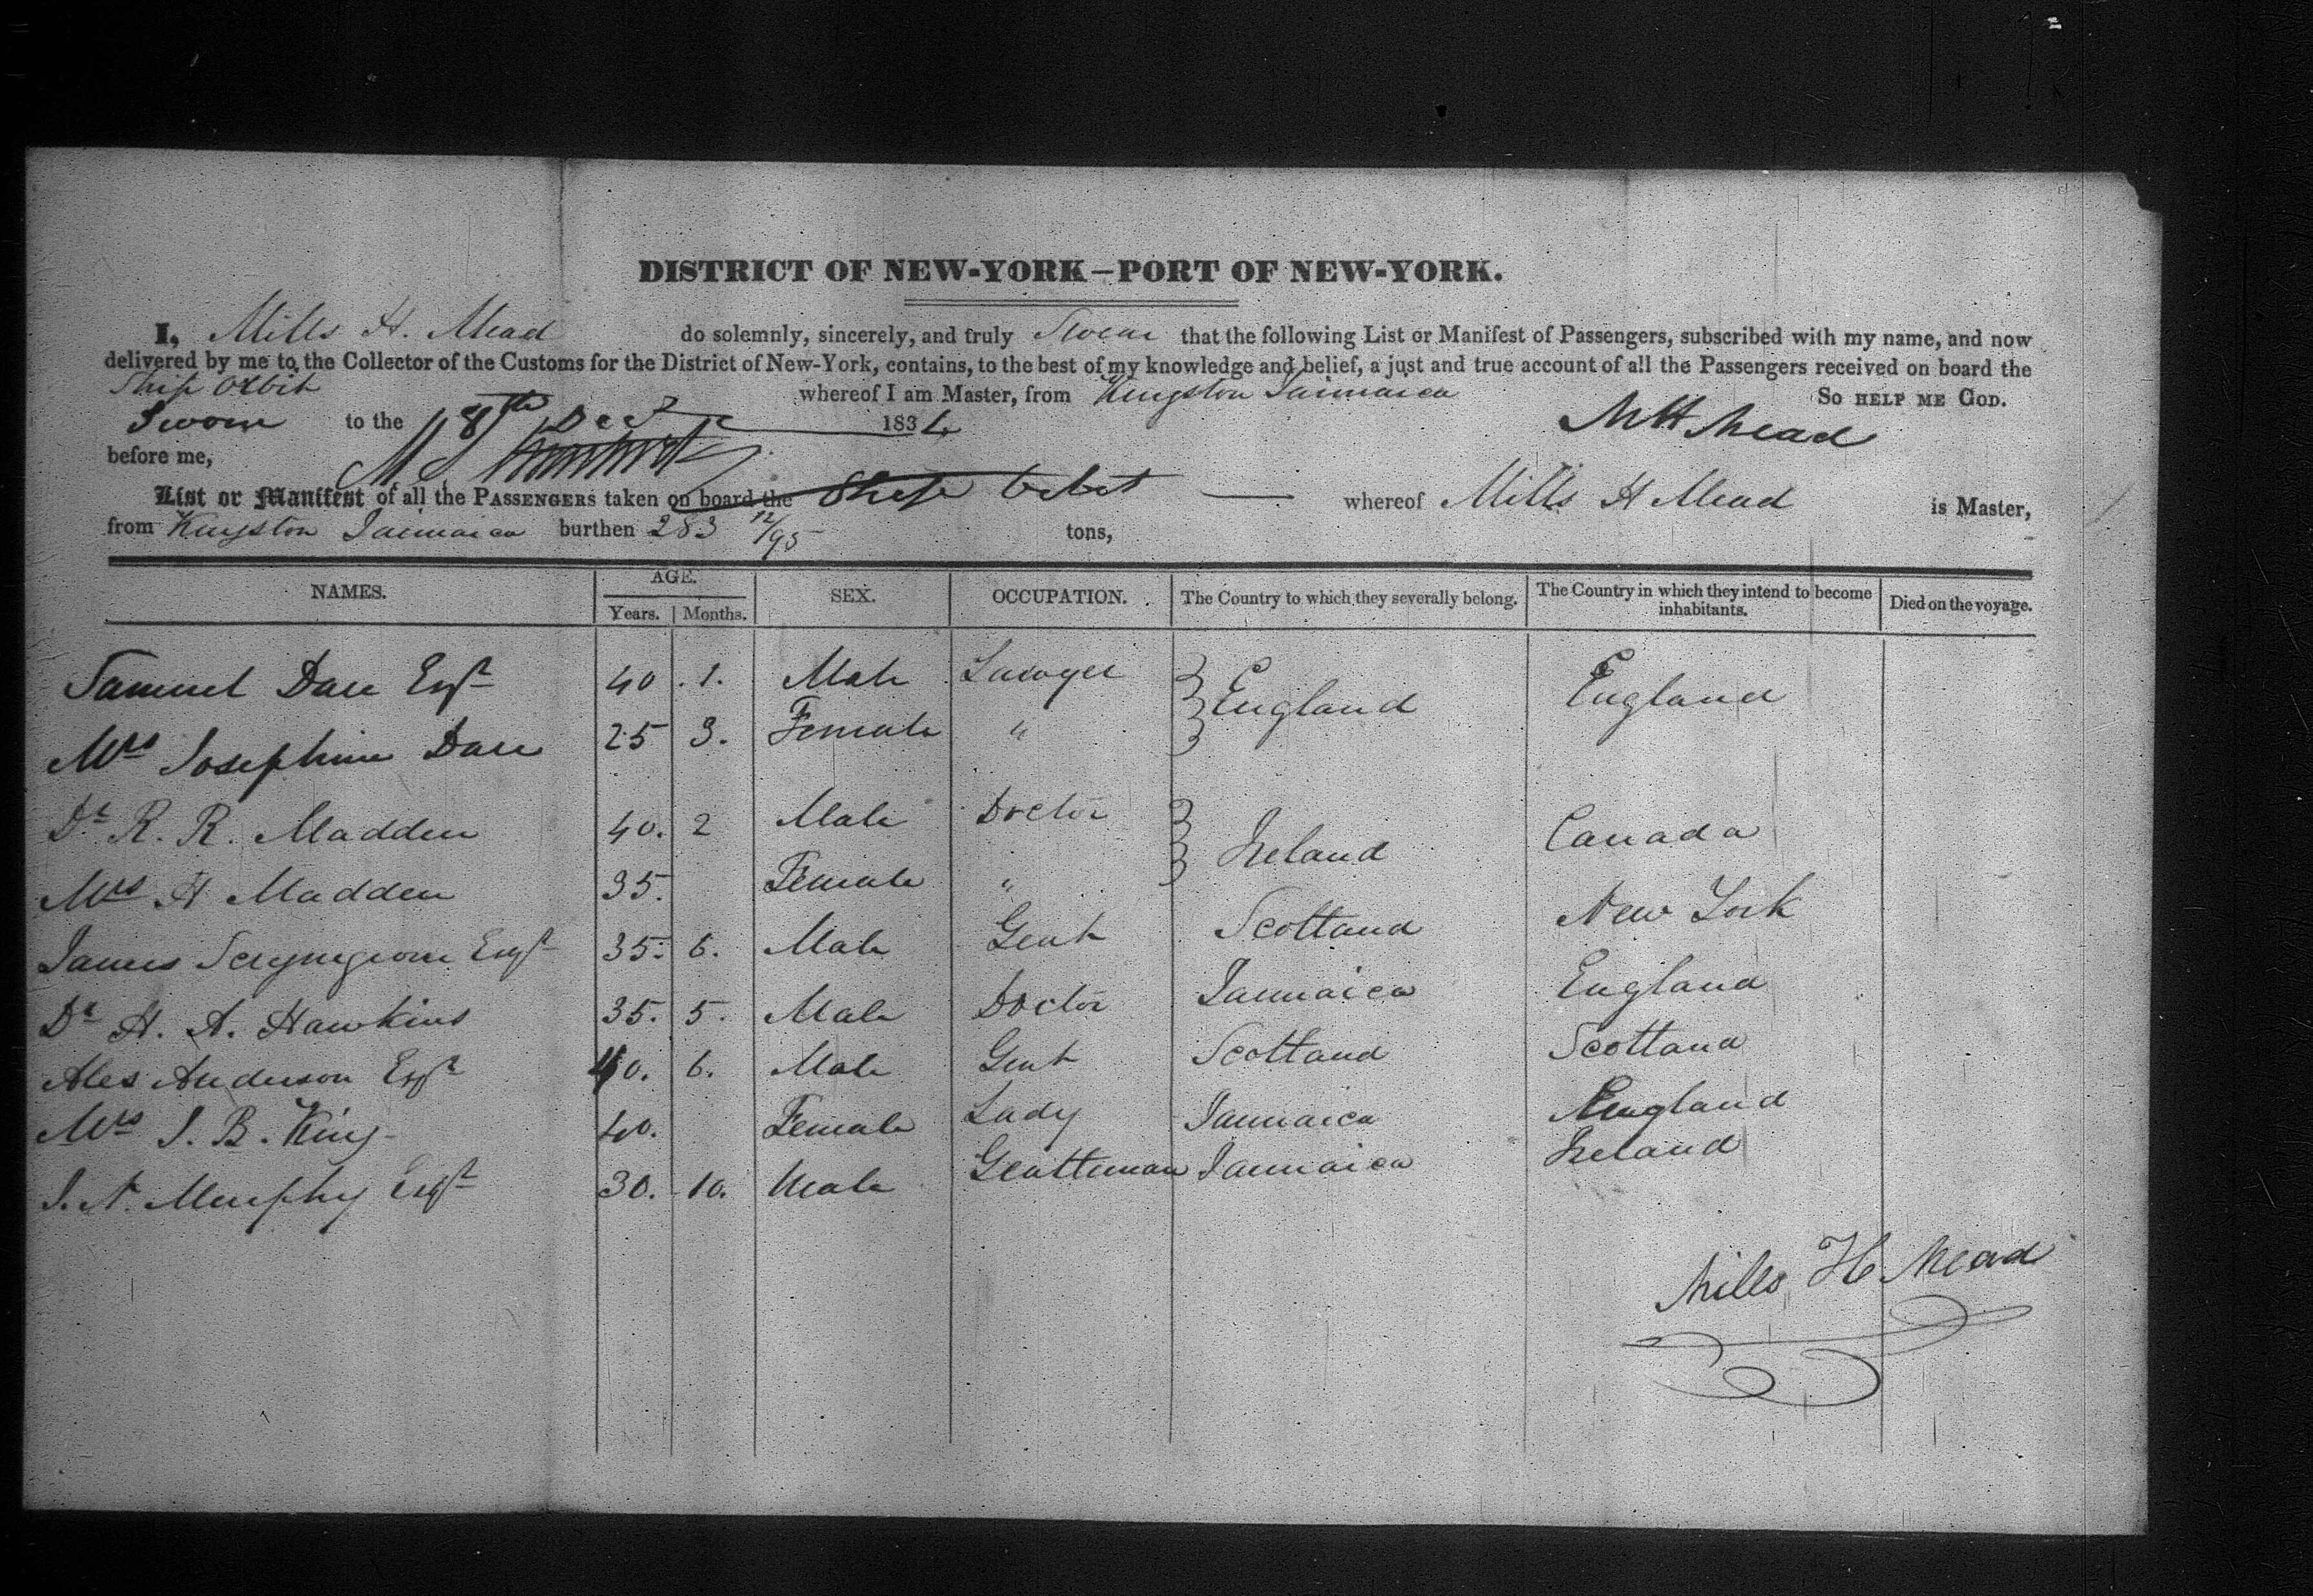 DISTRICT OF NEW-YORK–PORT OF NEW-YORK.
I, Mills H. Mead do solemnly, sincerely, and truly Swear that the following List or Manifest of Passengers, subscribed with my name, and now
delivered by me to the Collector of the Customs for the District of New-York, contains, to the best of my knowledge and belief, a just and true account of all the Passengers received on board the
Ship Orbit whereof I am Master, from Kingston Jaimaica So HELP ME GOD.
Sworn to the 18th Dec 1834 MH Mead
before me,
List or Manifest of all the PASSENGERS taken on board the Ship Orbit whereof Mills H Mead is Master,
from Kingston Jaimaica burthen 283 12/95 tons,
NAMES. AGE. SEX. OCCUPATION. The Country to which they severally belong. The Country in which they intend to become inhabitants. Died on the voyage.
Years. Months.
Samuel Dare Esqr 40 1. Male Lawyer England England
Mrs Josephine Dare 25 3. Female "
Dr R. R. Madden 40. 2 Male Doctor Ireland Canada
Mrs H Madden 35. Female "
James Esqr 35. 6. Male Gent Scotland New York
Dr H. A. Hawkins 35. 5. Male Doctor Jamaica England
Alex Anderson Esqr 40. 6. Male Gent Scotland Scotland
Mrs J. B. King 40. Female Lady Jamaica England
J. N. Murphy Esqr 30. 10. Male Gentleman Jamaica Ireland
Mills H Mead